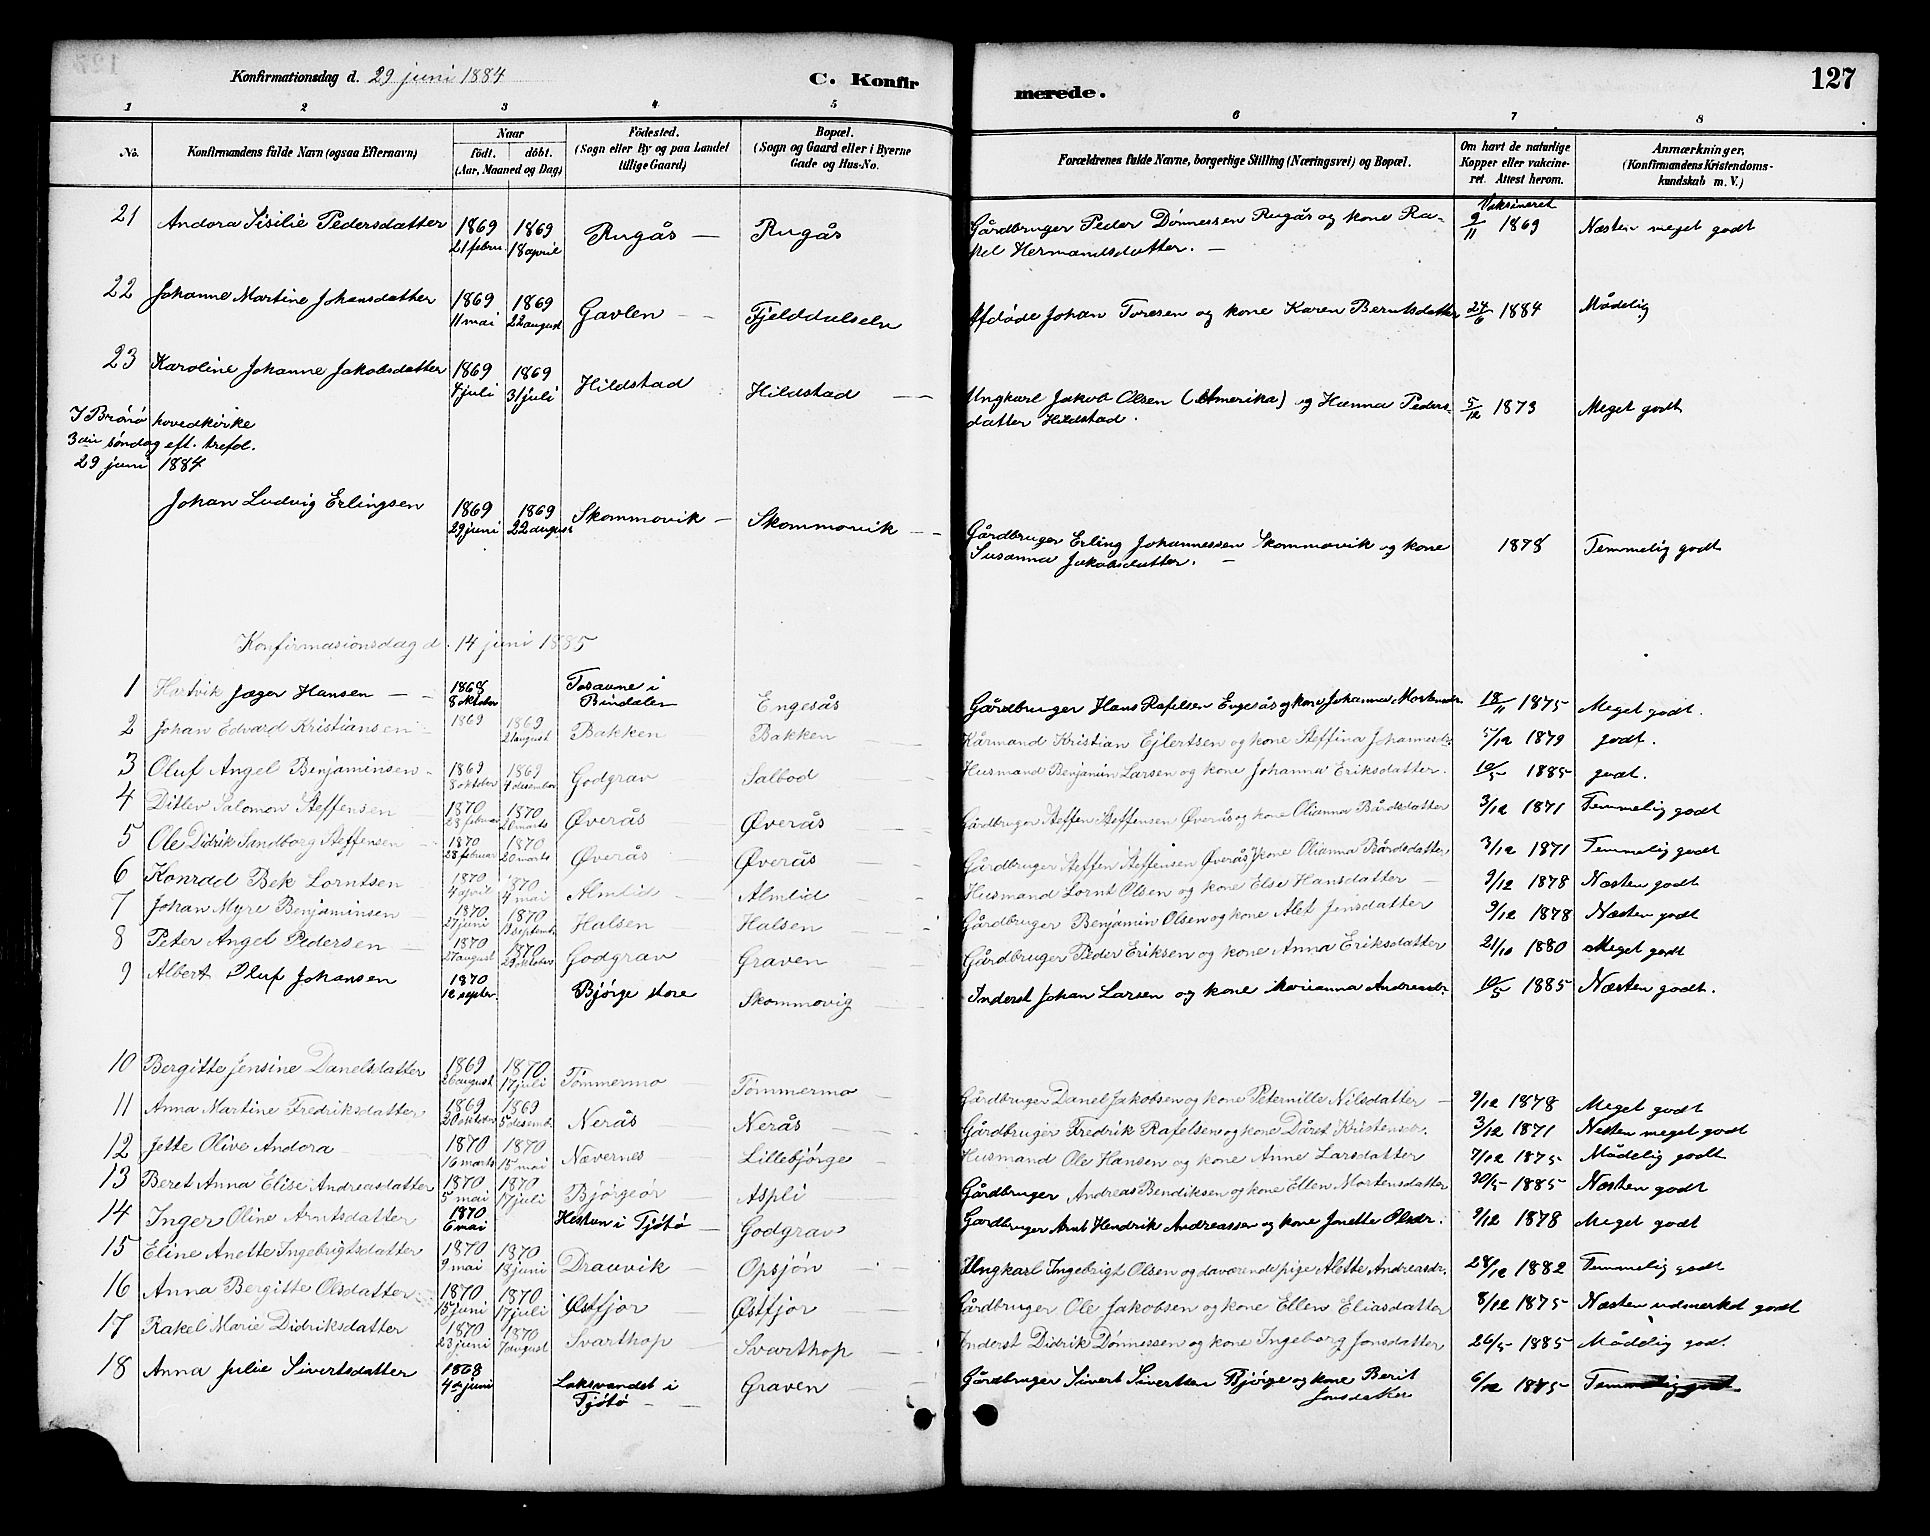 Konfirmationsdag d. 29 juni 1884
C. Konfir merede.
127
1 2 3 4 5 6 7 8
No.
Konfirmandens fulde Navn (ogsaa Efternavn)
Naar
födt. döbt.
(Aar, Maaned og Dag)
Födested.
(Sogn eller By og paa Landet
tillige Gaard)
Bopæl.
(Sogn og Gaard eller i Byerne
Gade og Hus-No.
Forældrenes fulde Navne, borgerlige Stilling (Næringsvei) og Bopæl.
Om havt de naturlige
Kopper eller vakcine-
ret. Attest herom.
Anmærkninger,
(Konfirmandens Kristendoms-
kundskab m. V.)
Vaksineret
21 Andora Sisilie Pedersdatter 1869 21 febru 1869 18 april Rugås — Rugås Gårdbruger Peder Dønnessen Rugås og kone Ra-
kel Hermandsdatter. — 9/11 1869 Næsten meget godt
22 Johanne Martine Johansdatter 1869 11 mai 1869 22 august Gavlen — Fjelddalselv Afdøde Johan Toresen og kone Karen Berntsdatter 24/6 1884 Mådelig
23 Karoline Johanne Jakobsdatter 1869 4 juli 1869 31 juli Hildstad Hildstad — Ungkarl Jakob Olsen (Amerika) og Hanna Peders-
datter Hildstad. 5/12 1873 Meget godt
I Brønø hovedkirke
3die søndag eft. trefol.
29 juni 1884
Johan Ludvig Erlingsen 1869 29 juni 1869 22 august Skommovik — Skommovik — Gårdbruger Erling Johannessen Skommovik og kone
Susanna Jakobsdatter. — 1878 Temmelig godt
Konfirmasionsdag d. 14 juni 1885
1 Hartvik Jæger Hansen — 1868 8 oktober Tosavne i
Bindalen Engesås Gårdbruger Hans Rafelsen Engesås og kone Johanna Mortensdr. 18/11 1875 Meget godt.
2 Johan Edvard Kristiansen 1869 1869 21 august Bakken — Bakken Kårmand Kristian Ejlertsen og kone Steffina Johannesdr. 5/12 1879 godt.
3 Oluf Angel Benjaminsen 1869 8 oktober 1869 4 desember Godgrav Salbod Husmand Benjamin Larsen og kone Johanna Eriksdatter. 10/5 1885 godt.
4 Ditlev Salomon Steffensen 1870 28 februar 1870 20 marts Øverås Øverås Gårdbruger Steffen Steffensen Øverås og kone Olianna Bårdsdatter 3/12 1871 Temmelig godt
5 Ole Didrik Sandborg Steffensen 1870 28 februar 1870 20 marts Øverås Øverås Gårdbruger Steffen Steffensen Øverås kone Olianna Bårdsdatter, 3/12 1871 Temmelig godt
6 Konrad Bek Lorntsen 1870 4 april 1870 4 mai Almlid Almlid Husmand Lornt Olsen og kone Else Hansdatter 9/12 1878 Næsten godt
7 Johan Myre Benjaminsen 1870 27 juni 1870 13 septemb. Halsen Halsen Gårdbruger Benjamin Olsen og kone Alet Jensdatter 9/12 1878 Næsten godt
8 Peter Angel Pedersen 1870 27 august 1870 29 oktober Godgrav Graven Gårdbruger Peder Eriksen og kone Anna Eriksdatter 21/10 1880 Meget godt
9 Albert Oluf Johansen 1870 12 septer. Bjørge store Skommovig Inderst Johan Larsen og kone Marianna Andreasdr. 10/5 1885 Næsten godt.
10 Bergitte Jensine Danelsdatter 1869 26 august 1870 17 juli Tømmermo Tømmermo Gårdbruger Danel Jakobsen og kone Peternille Nilsdatter 9/12 1878 Meget godt
11 Anna Martine Fredriksdatter 1869 20 oktober 1869 5 desemb. Nerås Nerås Gårdbruger Fredrik Rafelsen og kone Dåret Kristensdr. 3/12 1871 Nesten meget godt
12 Jette Olive Andora 1870 16 marts 1870 15 mai Nævernes Lillebjørge Husmand Ole Hansen og kone Anne Larsdatter 7/12 1875 Mådelig godt
13 Beret Anna Elise Andreasdatter 1870 5 mai 1870 17 juli Bjørgeør Aspli Gårdbruger Andreas Bendiksen og kone Ellen Mortensdatter 30/5 1885 Næsten godt
14 Inger Oline Arntsdatter 1870 6 mai Hestun i Tjøtø Godgrav Gardbruger Arnt Hendrik Andreassen og kone Jonette Olsdr. 9/12 1878 Meget godt
15 Eline Anette Ingebrigtsdatter 1870 9 mai 1870 18 juni Drauvik Opsjøn Ungkarl Ingebrigt Olsen og daværende pige Alette Andreasdr. 28/12 1882 Temmelig godt
16 Anna Bergitte Olsdatter 1870 15 juni 1870 17 juli Østfjor Østfjor Gårdbruger Ole Jakobsen og kone Ellen Eliasdatter 8/12 1875 Næsten udmerket godt
17 Rakel Marie Didriksdatter 1870 23 juni 1870 7 august Svarthop Svarthop Inderst Didrik Dønnessen og kone Ingeborg Jonsdatter 26/5 1885 Måddelig god.
18 Anna Julie Sivertsdatter 1868 4de juni Laksvandet i
Tjøtø Graven Gårdbruger Sivert Sivertsen Bjørge og kone Berit
Jonsdatter 6/12 1875 Temmelig godt